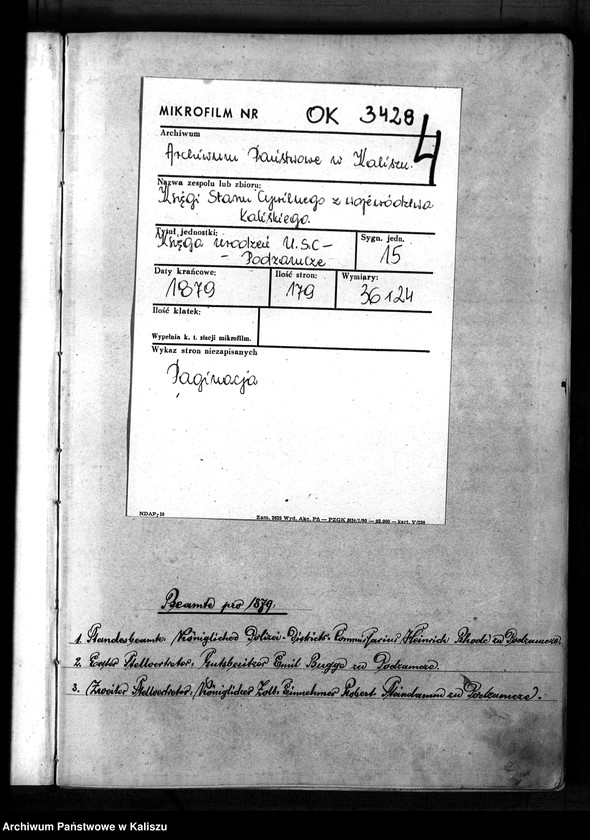 MIKROFILM NR OK 3428 4
Archiwum
Archiwum Państwowe w Kaliszu.
Nazwa zespołu lub zbioru:
Księgi Stanu Cywilnego z województwa
Kaliskiego.
Tytuł jednostki: Sygn. jedn.
Księga urodzeń U.S.C- 15
- Podzamcze
Daty krańcowe: Ilość stron: Wymiary:
1879 179 36x24
Ilość klatek:
Wypełnia k. t. stacji mikrofilm.
Wykaz stron niezapisanych
Paginacja
NDAP, 10 Zam. 2625 Wyd. Akc. Pń — PZGK — kart. V/220
Beamte pro 1879.
1. Standesbeamte: Königlicher Polizei-Districts-Commissarius Heinrich Rhode zu Podzamcze.
2. Erster Stellvertreter: Gutsbesitzer Emil Bugge zu Podzamcze.
3. Zweiter Stellvertreter: Königlicher Zoll-Einnehmer Robert Steindamm zu Podzamcze.
Archiwum Państwowe w Kaliszu